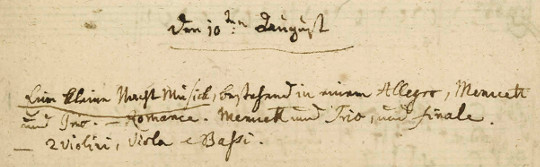 den 10ten August
Eine kleine Nacht Musick, bestehend in einem Allegro, Menuett
und Trio. – Romance. Menuett und Trio, und Finale.
– 2 violini, viola e Bassi.